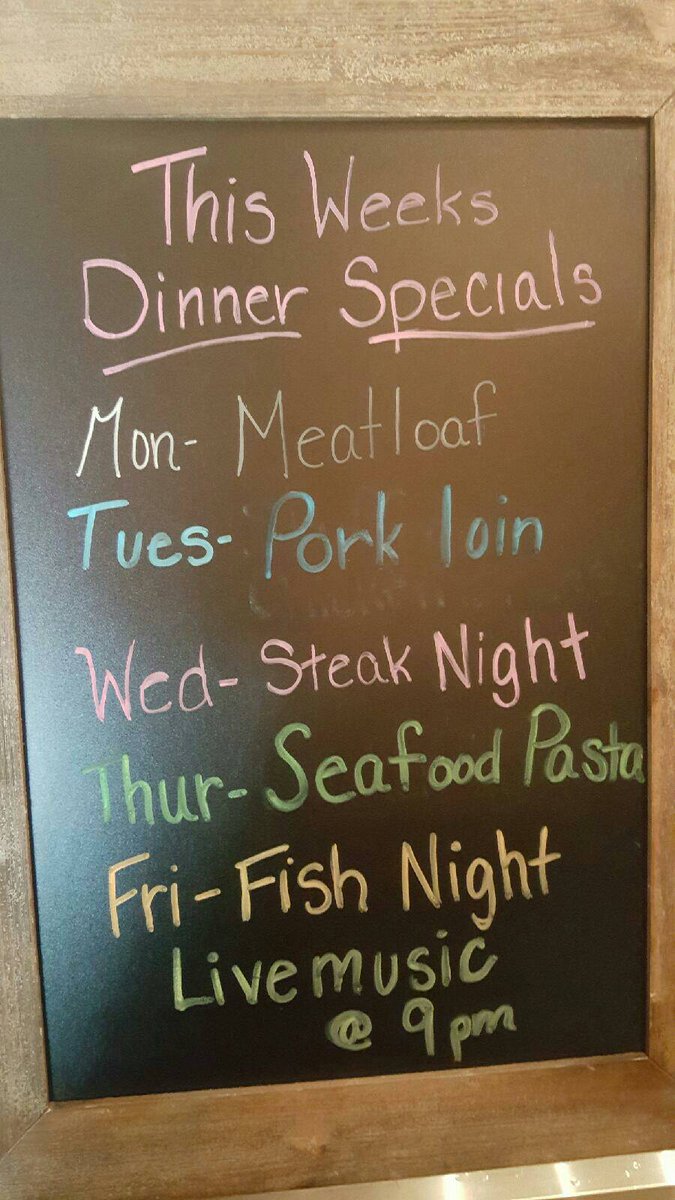 This Weeks
Dinner Specials
Mon- Meatloaf
Tues- Pork loin
Wed- Steak Night
Thur- Seafood Pasta
Fri- Fish Night
Live music
@ 9pm